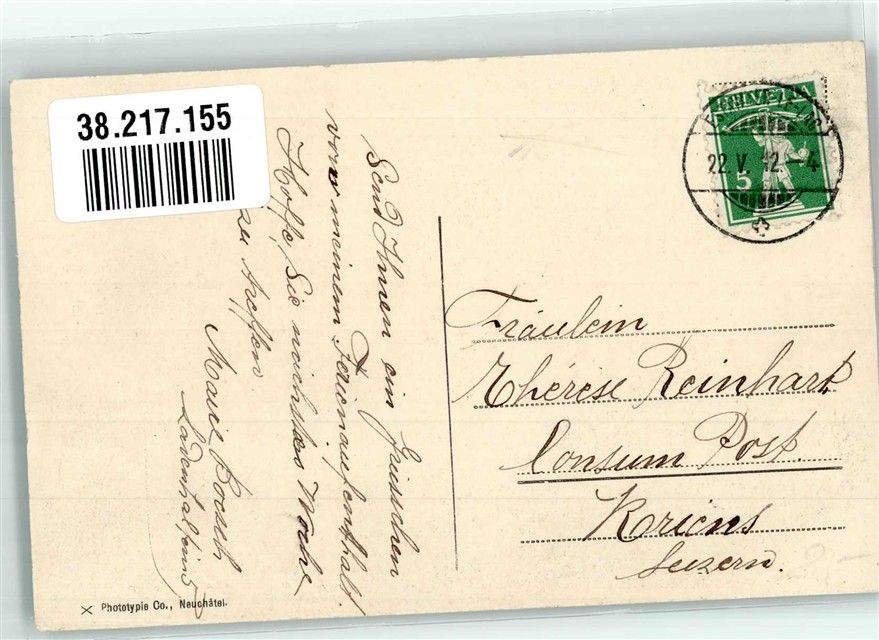 38.217.155
HELVETIA
22. V. 12. - 4
5
Send Ihnen ein Grüsschen
von meinem Ferienaufenthalt!
Hoffe, Sie nächsten Woche
zu treffen
Marie
Fräulein
Thérèse Reinhart
Consum Post.
Kriens
Luzern.
Phototypie Co., Neuchâtel.